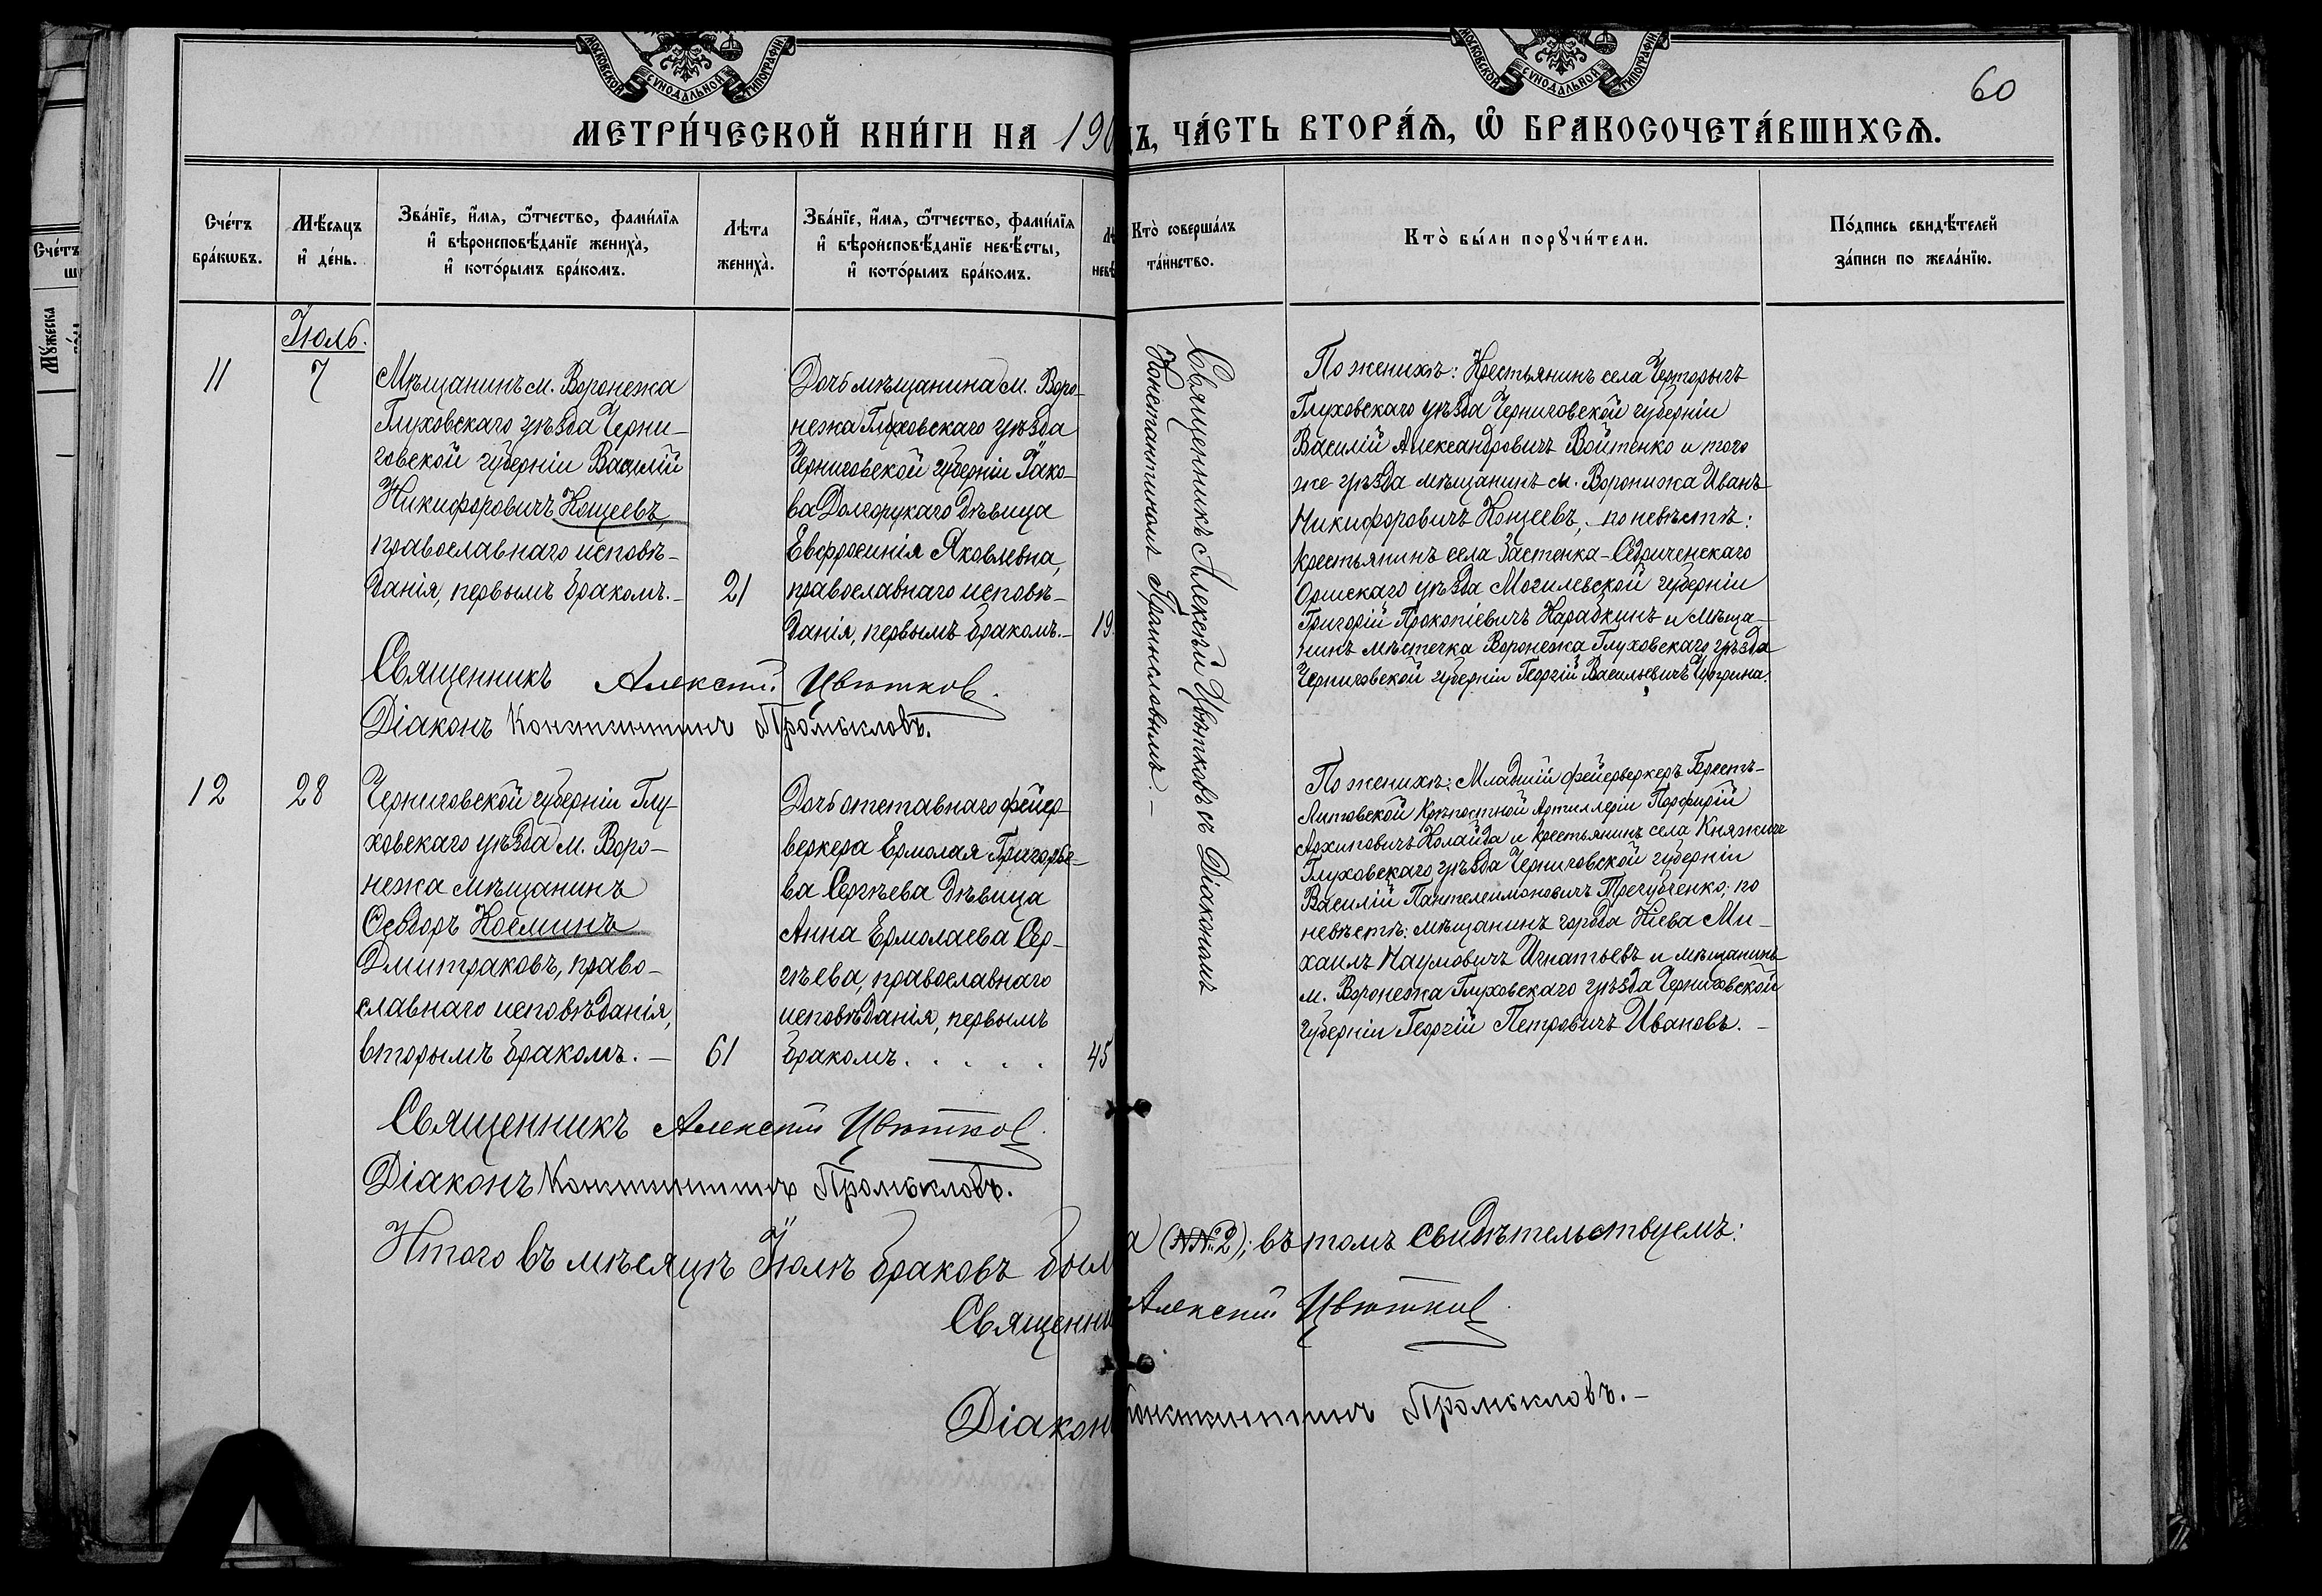 МОСКОВСКОЙ СѴНОДАЛЬНОЙ ТИПОГРАФІИ
МОСКОВСКОЙ СѴНОДАЛЬНОЙ ТИПОГРАФІИ
60
МЕТРИ́ЧЕСКОЙ КНИ́ГИ НА 190
дъ, ЧА́СТЬ ВТОРА́Ѧ, Ѽ БРАКОСОЧЕТА́ВШИХСѦ.
Сче́тъ
бра́кѡвъ.
Мѣ́сяцъ
и҆ де́нь.
Зва́нїе, и҆́мя, ѻ҆́тчество, фами́лїя
и҆ вѣроисповѣ́данїе жениха̀,
и҆ кото́рымъ бра́комъ.
Лѣта
жениха̀.
Зва́нїе, и҆́мя, ѻ҆́тчество, фами́лїя
и҆ вѣроисповѣ́данїе невѣ́сты,
и҆ кото́рымъ бра́комъ.
Лѣ
невѣ
Кто̀ соверша́лъ
та́инство.
Кто̀ бы́ли порꙋчи́тели.
По́дпись свидѣ́телей
за́писи по жела́нїю.
Сче́тъ
Мꙋ́жеска
Іюль.
11
7
Мѣщанинъ м. Воронежа
Глуховскаго уѣзда Черни-
говской губерніи Василій
Никифоровичъ Кощеевъ,
православнаго исповѣ-
данія, первымъ бракомъ.-
21
Дочь мѣщанина м. Воро-
нежа Глуховскаго уѣзда
Черниговской губерніи Іако-
ва Долгорукаго дѣвица
Евфросинія Яковлевна,
православнаго исповѣ-
данія, первымъ бракомъ.-
19
Священникъ Алексѣй Цвѣтковъ съ Діакономъ
Константиномъ Промысловымъ.-
По женихѣ: Крестьянинъ села Чорторыгъ
Глуховскаго уѣзда Черниговской губерніи
Василій Александровичъ Войтенко и того
же уѣзда мѣщанинъ м. Воронежа Иванъ
Никифоровичъ Кощеевъ, по невѣстѣ:
крестьянинъ села Застенка-
Оршскаго уѣзда Могилевской губерніи
Григорій Прокопіевичъ Карабкинъ и мѣща-
нинъ мѣстечка Воронежа Глуховскаго уѣзда
Черниговской губерніи Георгій Васильевичъ
Священникъ Алексѣй Цвѣтков.
Діаконъ Константинъ Промысловъ.
12
28
Черниговской губерніи Глу-
ховскаго уѣзда м. Воро-
нежа мѣщанинъ
Ѳеодоръ Косминъ
Дмитраковъ, право-
славнаго исповѣданія,
вторымъ бракомъ. -
61
Дочь отставнаго фейер-
веркера Ермолая Григорье-
ва Сергѣева дѣвица
Анна Ермолаева Сер-
гѣева, православнаго
исповѣданія, первымъ
бракомъ. . . . .
45
По женихѣ: Младшій фейерверкеръ Брестъ-
Литовской Крѣпостной Артиллеріи Порфирій
Архиповичъ Колайда и крестьянинъ села Княжичъ
Глуховскаго уѣзда Черниговской губерніи
Василій Пантелеимоновичъ Трегубченко; по
невѣстѣ: мѣщанинъ города Кіева Ми-
хаилъ Наумовичъ Игнатьевъ и мѣщанинъ
м. Воронежа Глуховскаго уѣзда Черниговской
губерніи Георгій Петровичъ Ивановъ. -
Священникъ Алексѣй Цвѣтков.
Діаконъ Константинъ Промысловъ.
Итого въ мѣсяцѣ Іюлѣ браковъ был
а (№№ 2); въ томъ свидѣтельствуемъ:
Священни
Алексѣй Цвѣтков
Діакон
Константинъ Промысловъ.-